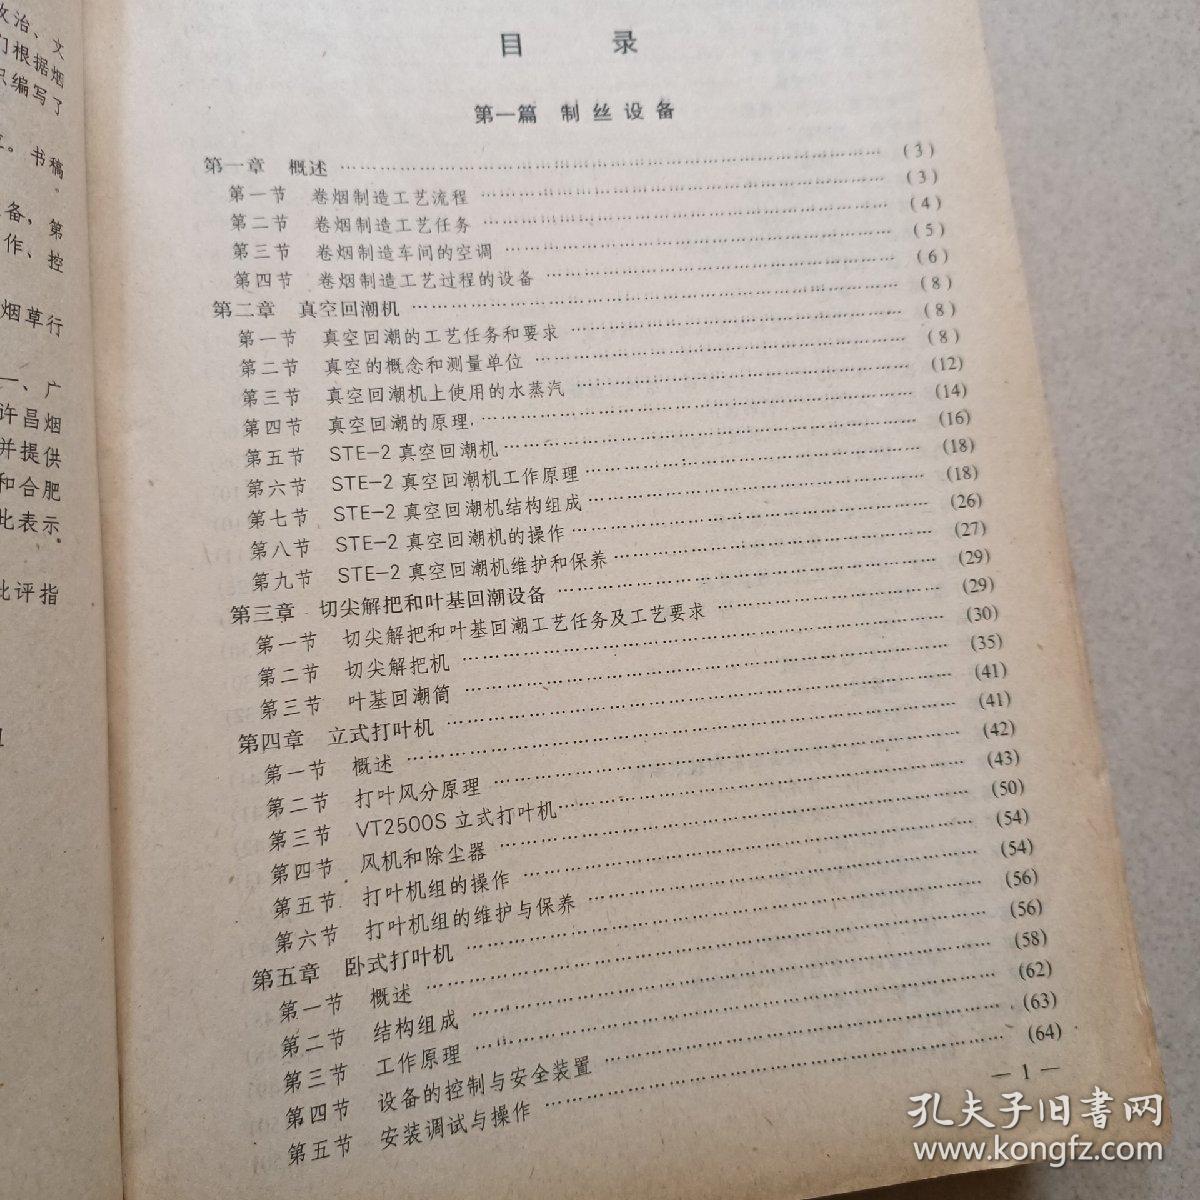 政治、文
根据烟
编写了
。书稿
备，第
作、控
烟草行
一、广
许昌烟
并提供
和合肥
此表示
批评指
目 录
第一篇 制丝设备
第一章 概述 …… (3)
第一节 卷烟制造工艺流程 …… (3)
第二节 卷烟制造工艺任务 …… (4)
第三节 卷烟制造车间的空调 …… (5)
第四节 卷烟制造工艺过程的设备 …… (6)
第二章 真空回潮机 …… (8)
第一节 真空回潮的工艺任务和要求 …… (8)
第二节 真空的概念和测量单位 …… (8)
第三节 真空回潮机上使用的水蒸汽 …… (12)
第四节 真空回潮的原理 …… (14)
第五节 STE-2真空回潮机 …… (16)
第六节 STE-2真空回潮机工作原理 …… (18)
第七节 STE-2真空回潮机结构组成 …… (18)
第八节 STE-2真空回潮机的操作 …… (26)
第九节 STE-2真空回潮机维护和保养 …… (27)
第三章 切尖解把和叶基回潮设备 …… (29)
第一节 切尖解把和叶基回潮工艺任务及工艺要求 …… (29)
第二节 切尖解把机 …… (30)
第三节 叶基回潮筒 …… (35)
第四章 立式打叶机 …… (41)
第一节 概述 …… (41)
第二节 打叶风分原理 …… (42)
第三节 VT2500S立式打叶机 …… (43)
第四节 风机和除尘器 …… (50)
第五节 打叶机组的操作 …… (54)
第六节 打叶机组的维护与保养 …… (54)
第五章 卧式打叶机 …… (56)
第一节 概述 …… (56)
第二节 结构组成 …… (58)
第三节 工作原理 …… (62)
第四节 设备的控制与安全装置 …… (63)
第五节 安装调试与操作 …… (64)
— 1 —
孔夫子旧书网
www.kongfz.com